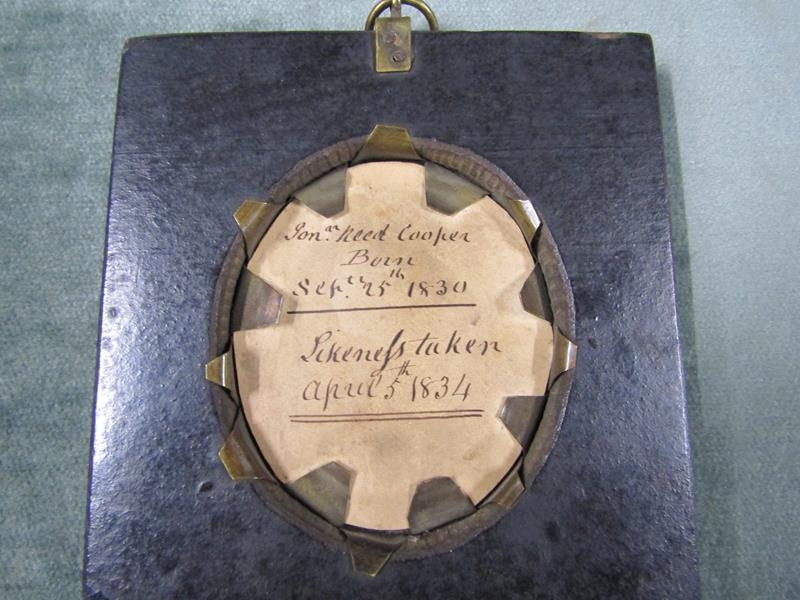 Jonan. Reed Cooper
Born
Sepr. 25th 1830
Likeness taken
April 5th 1834